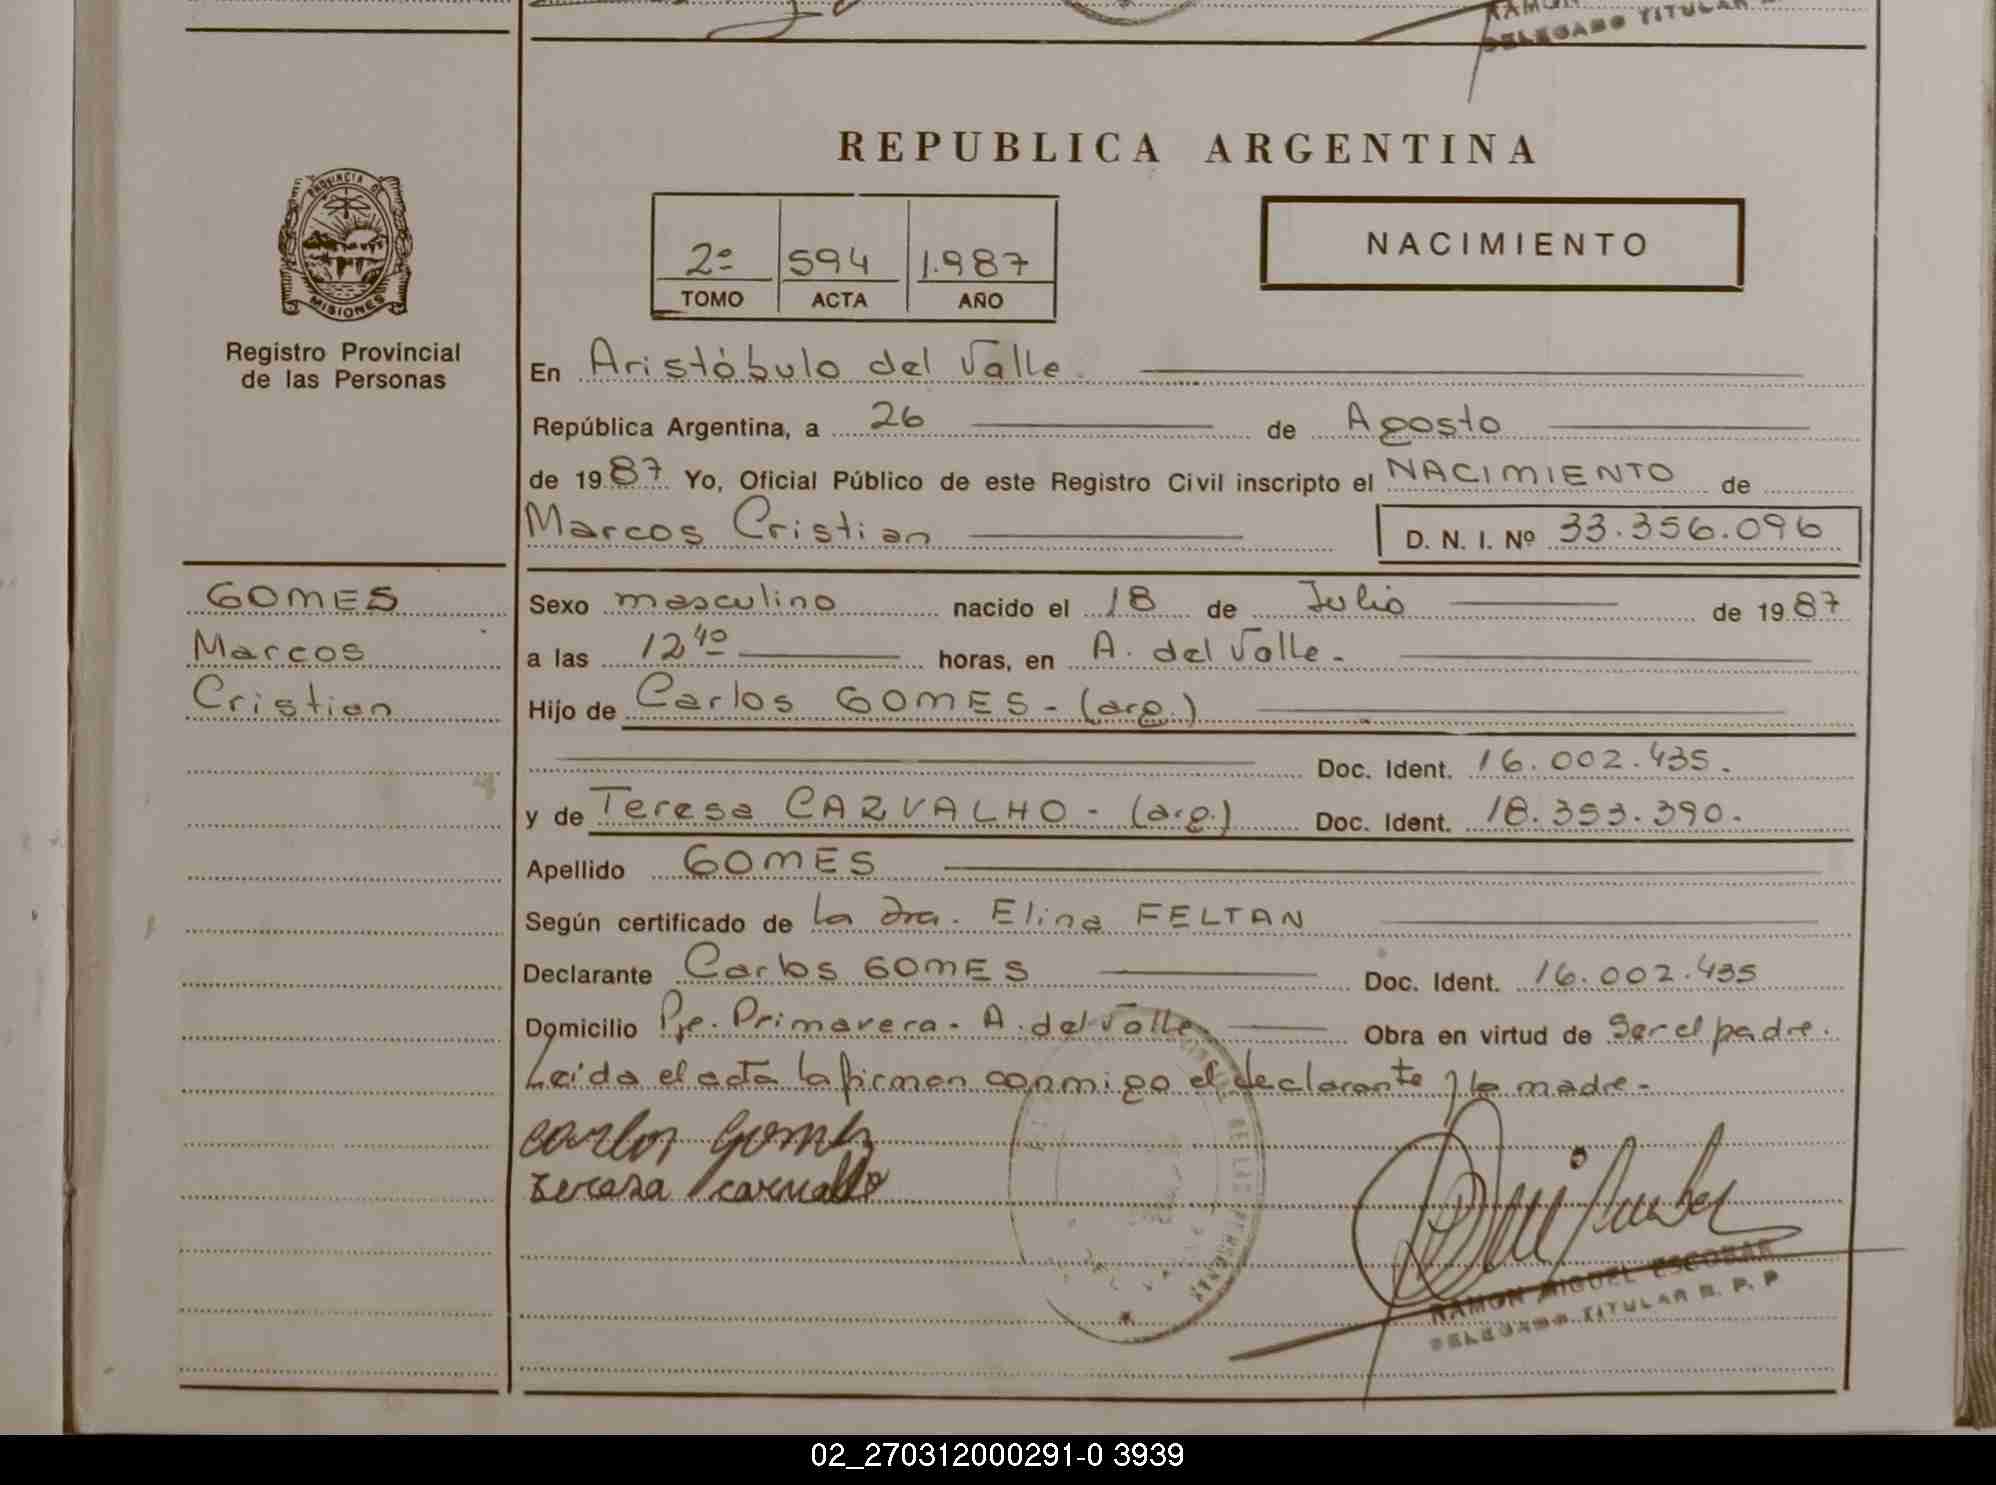 DELEGADO TITULAR
REPUBLICA ARGENTINA
PROVINCIA DE
MISIONES
Registro Provincial
de las Personas
2º 594 1.987
TOMO ACTA AÑO
NACIMIENTO
En Aristóbulo del Valle
República Argentina, a 26 de Agosto
de 1987 Yo, Oficial Público de este Registro Civil inscripto el NACIMIENTO de
Marcos Cristian D. N. I. Nº 33.356.096
GOMES
Marcos
Cristian
Sexo masculino nacido el 18 de Julio de 1987
a las 12 40 horas, en A. del Valle.
Hijo de Carlos GOMES - (arg.)
Doc. Ident. 16.002.435.
y de Teresa CARVALHO - (arg.) Doc. Ident. 18.353.390.
Apellido GOMES
Según certificado de la Dra. Elina FELTAN
Declarante Carlos GOMES Doc. Ident. 16.002.435
Domicilio Pje. Primavera. A. del Valle Obra en virtud de Ser el padre.
Leída el acta la firman conmigo el declarante y la madre.
Carlos Gomez
Teresa Carvallo
RAMON MIGUEL ESCOBAR
DELEGADO TITULAR R. P. P
02_270312000291-0 3939